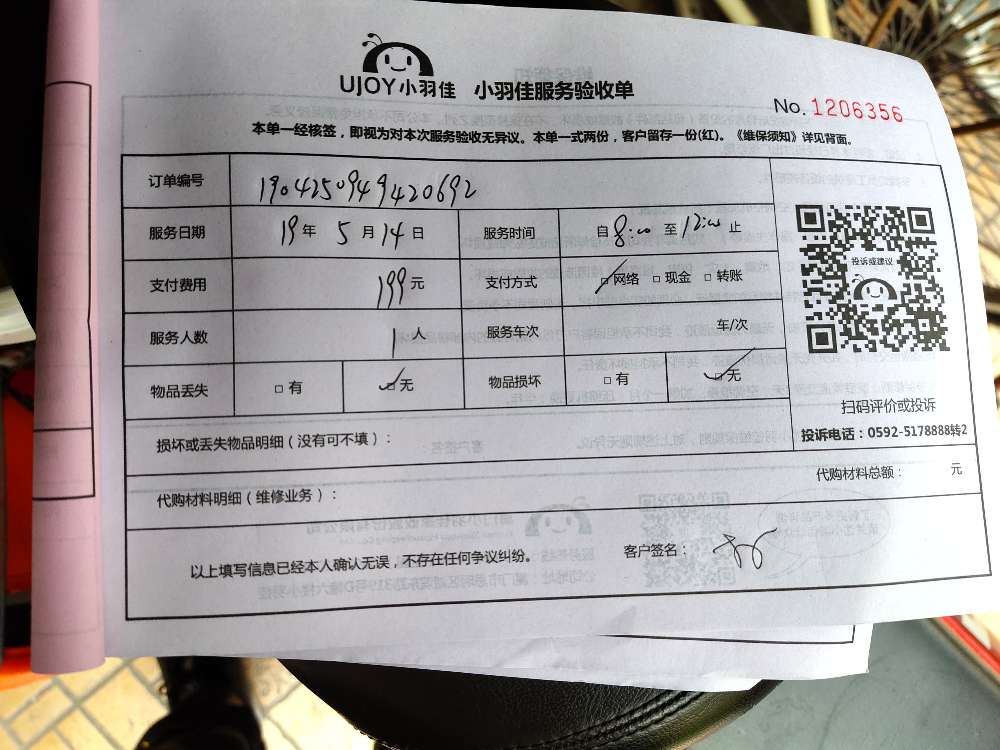 UJOY小羽佳 小羽佳服务验收单
No. 1206356
本单一经核签，即视为对本次服务验收无异议。本单一式两份，客户留存一份(红)。《维保须知》详见背面。
订单编号 1904250949420692
服务日期 19年 5月14日 服务时间 自8:00至12:00止
支付费用 199元 支付方式 □网络 □现金 □转账
投诉或建议
服务人数 1人 服务车次 车/次
物品丢失 □有 ✓□无 物品损坏 □有 ✓□无
扫码评价或投诉
投诉电话：0592-5178888转2
损坏或丢失物品明细（没有可不填）：
代购材料总额： 元
代购材料明细（维修业务）：
以上填写信息已经本人确认无误，不存在任何争议纠纷。 客户签名：